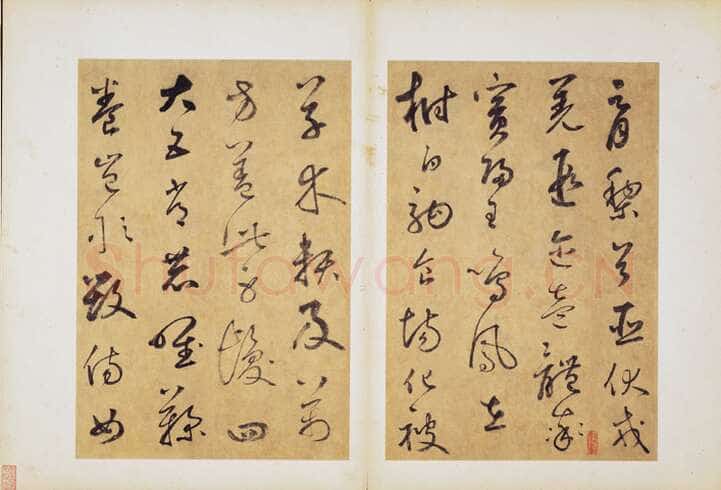 育黎首臣伏戎
羌遐邇壹體率
賓歸王鳴鳳在
樹白駒食場化被
草木賴及萬
方蓋此身髮四
大五常恭惟鞠
養豈敢毀傷女
Shufawang.CN